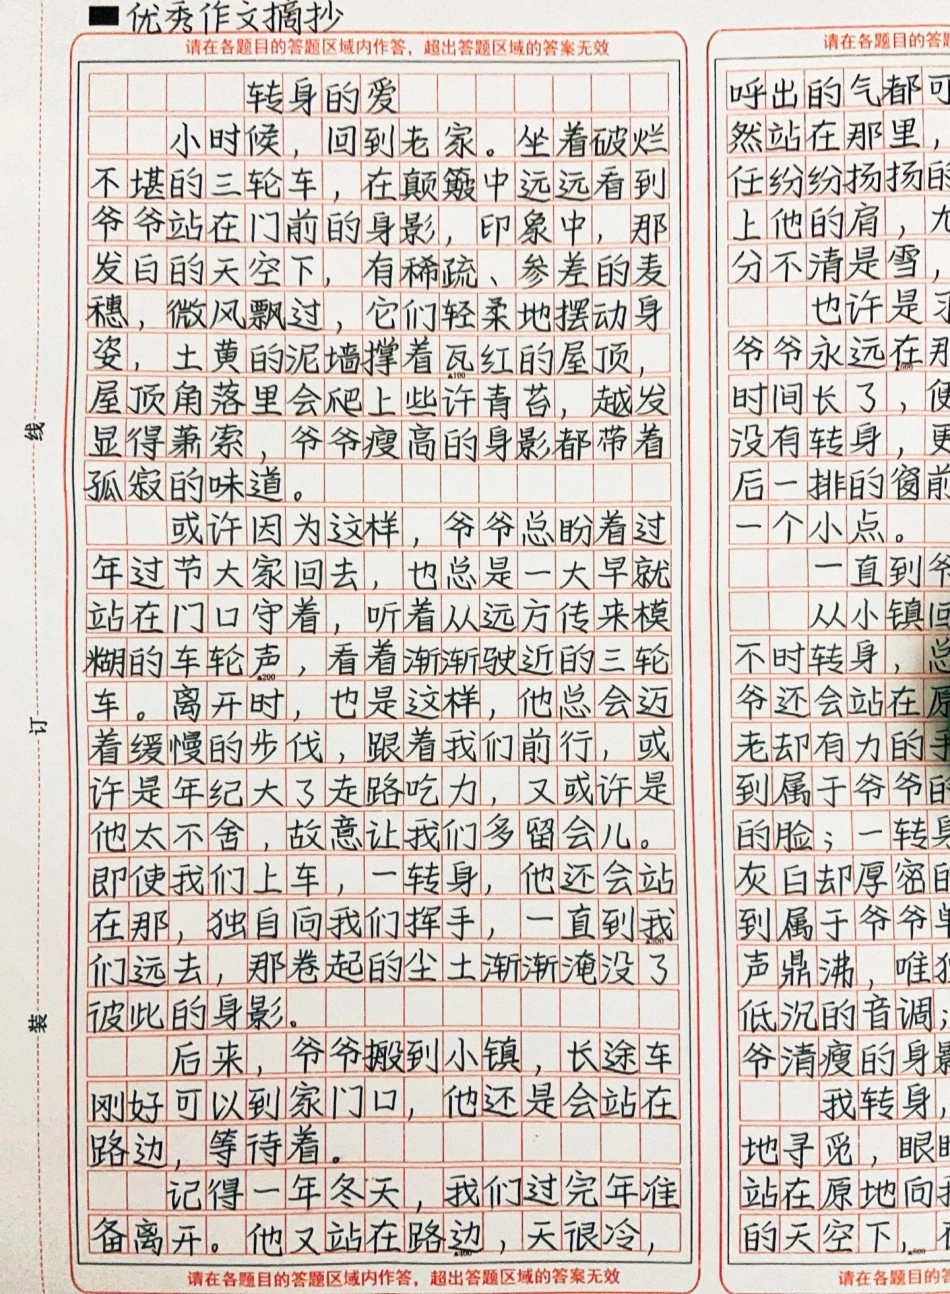 ■优秀作文摘抄
请在各题目的答题区域内作答，超出答题区域的答案无效
转身的爱
小时候，回到老家。坐着破烂
不堪的三轮车，在颠簸中远远看到
爷爷站在门前的身影，印象中，那
发白的天空下，有稀疏、参差的麦
穗，微风飘过，它们轻柔地摆动身
姿，土黄的泥墙撑着瓦红的屋顶，
▲100
屋顶角落里会爬上些许青苔，越发
显得萧索，爷爷瘦高的身影都带着
孤寂的味道。
或许因为这样，爷爷总盼着过
年过节大家回去，也总是一大早就
站在门口守着，听着从远方传来模
糊的车轮声，看着渐渐驶近的三轮
▲200
车。离开时，也是这样，他总会迈
着缓慢的步伐，跟着我们前行，或
许是年纪大了走路吃力，又或许是
他太不舍，故意让我们多留会儿。
即使我们上车，一转身，他还会站
在那，独自向我们挥手，一直到我
▲300
们远去，那卷起的尘土渐渐淹没了
彼此的身影。
后来，爷爷搬到小镇，长途车
刚好可以到家门口，他还是会站在
路边，等待着。
记得一年冬天，我们过完年准
备离开。他又站在路边，天很冷，
▲400
请在各题目的答题区域内作答，超出答题区域的答案无效
请在各题目的答
呼出的气都可
然站在那里，
任纷纷扬扬的
上他的肩，
分不清是雪，
也许是
爷爷永远在那
时间长了，便
没有转身，更
后一排的窗前
一个小点。
一直到爷
从小镇回
不时转身，总
爷还会站在原
老却有力的手
到属于爷爷的
的脸；一转身
灰白却厚密的
到属于爷爷单
声鼎沸，唯独
低沉的音调；
爷清瘦的身影
我转身，
地寻觅，眼眸
站在原地向我
的天空下，
请在各题目的答
线
订
装